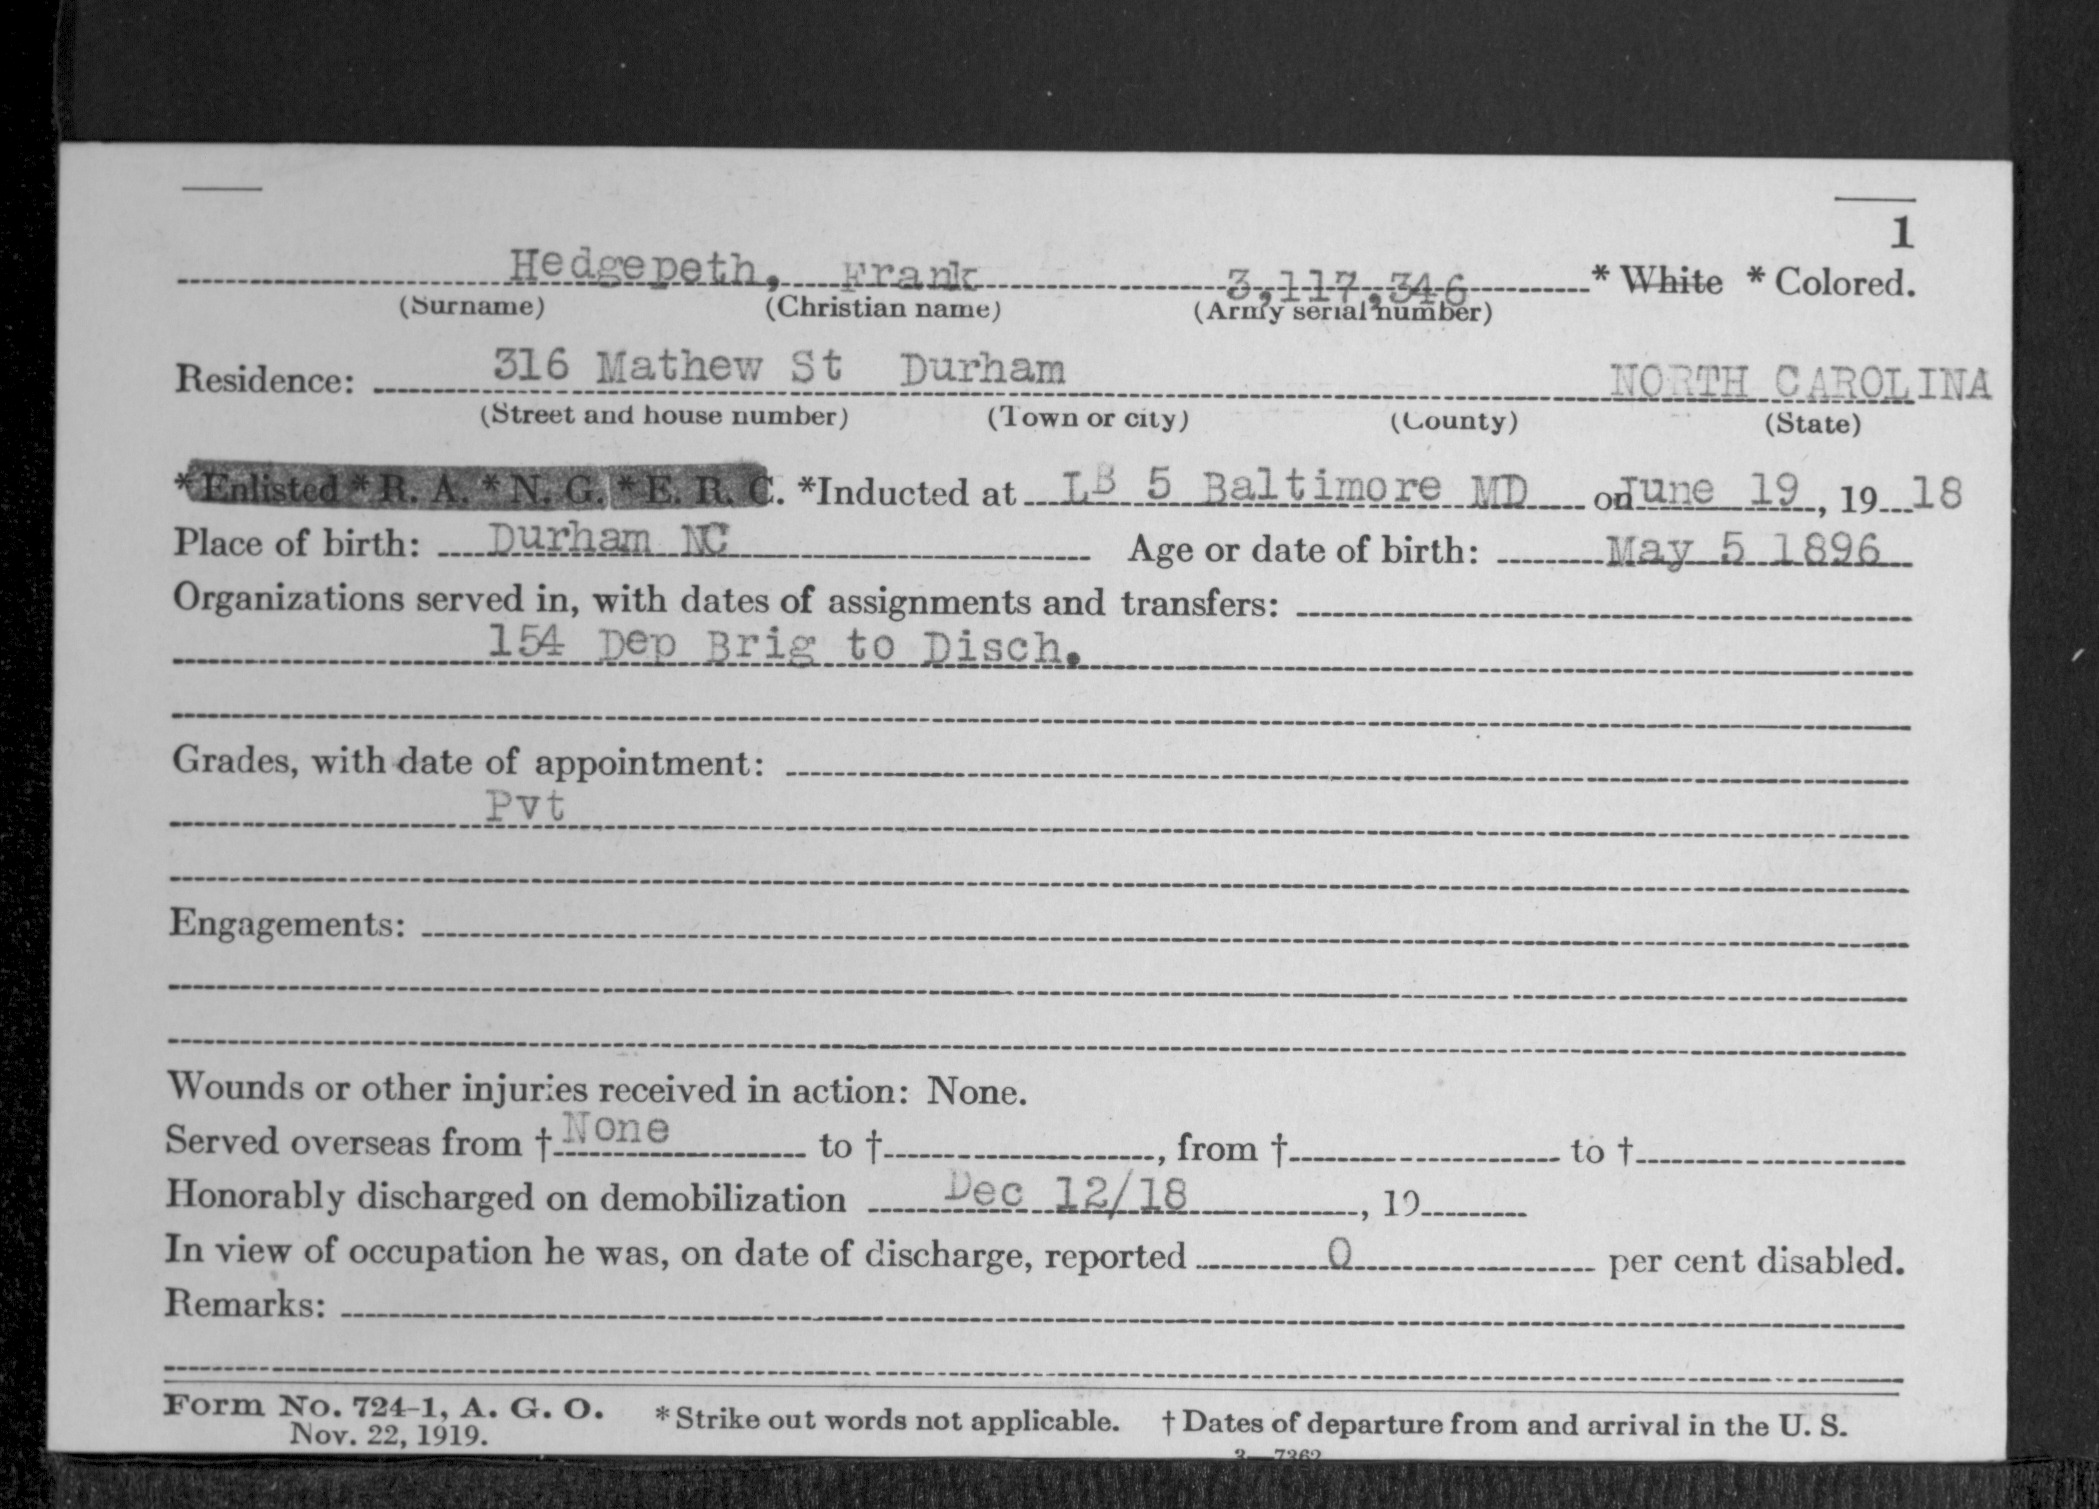 1
Hedgepeth, Frank 3,117,346 * White * Colored.
(Surname) (Christian name) (Army serial number)
Residence: 316 Mathew St Durham NORTH CAROLINA
(Street and house number) (Town or city) (County) (State)
*Enlisted * R. A. * N. G. * E. R. C. *Inducted at LB 5 Baltimore MD on June 19, 19 18
Place of birth: Durham NC Age or date of birth: May 5 1896
Organizations served in, with dates of assignments and transfers:
154 Dep Brig to Disch.
Grades, with date of appointment:
Pvt
Engagements:
Wounds or other injuries received in action: None.
Served overseas from † None to †, from † to †
Honorably discharged on demobilization Dec 12/18, 19
In view of occupation he was, on date of discharge, reported 0 per cent disabled.
Remarks:
Form No. 724-1, A. G. O. * Strike out words not applicable. † Dates of departure from and arrival in the U. S.
Nov. 22, 1919.
3—7362